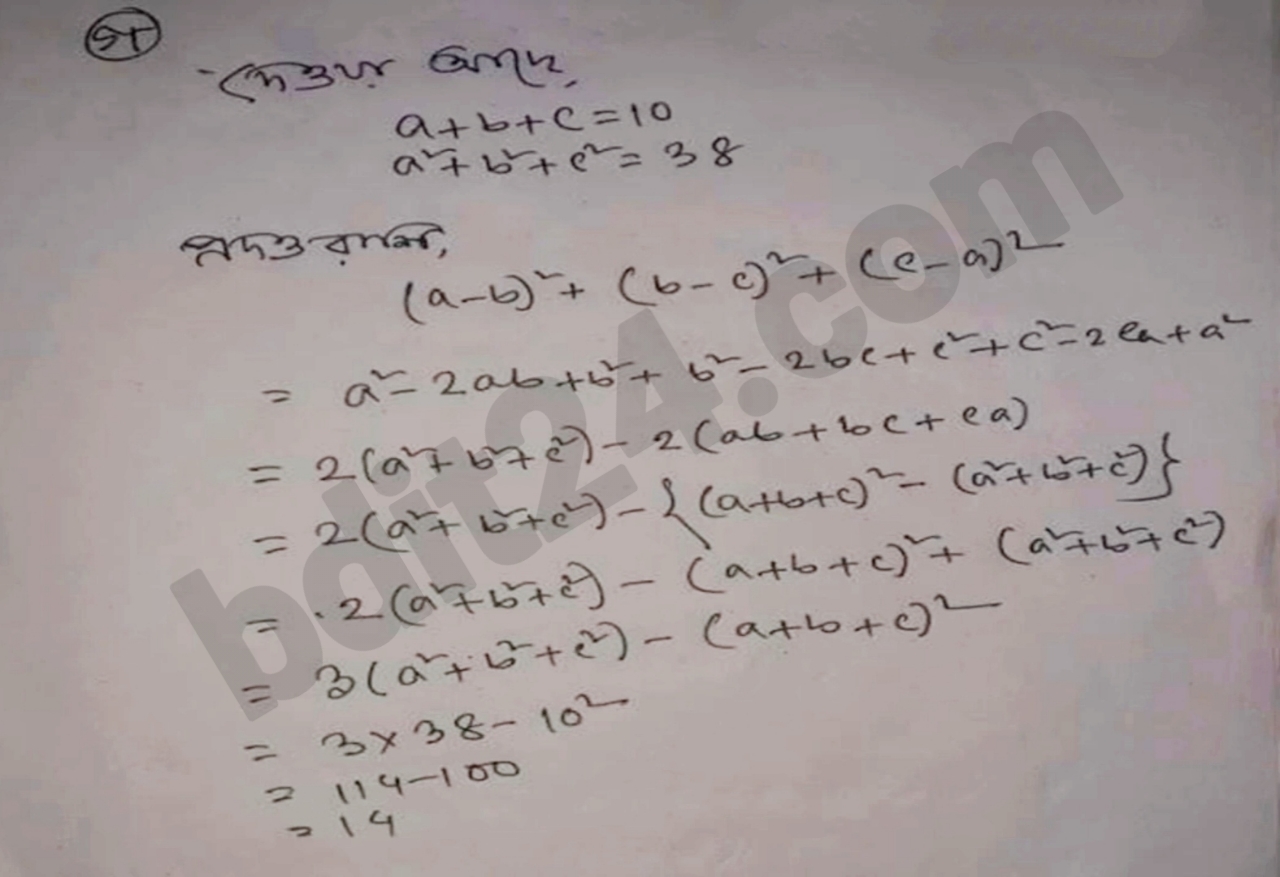 গ
দেওয়া আছে,
a+b+c=10
a²+b²+c²=38
প্রদত্ত রাশি,
(a-b)²+ (b-c)²+ (c-a)²
= a²-2ab+b²+ b²-2bc+c²+c²-2ca+a²
= 2(a²+b²+c²)-2(ab+bc+ca)
= 2(a²+b²+c²)-{(a+b+c)²-(a²+b²+c²)}
= 2(a²+b²+c²)-(a+b+c)²+(a²+b²+c²)
= 3(a²+b²+c²)-(a+b+c)²
= 3×38-10²
= 114-100
= 14
bdit24.com